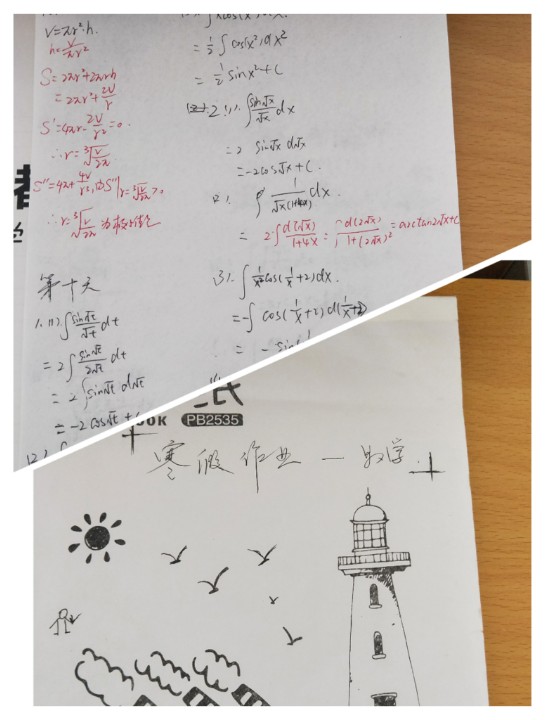 V=πr²·h.
h=V/πr²
S=2πr²+2πrh
=2πr²+2V/r
S'=4πr-2V/r²=0.
∴r=³√(V/2π)
第十天
1.(1).∫sin√t/√t dt
=2∫sin√t/2√t dt
=2∫sin√t d√t
=-2cos√t+C
=½∫cos(x²)dx²
=½sinx²+C
2.(1).∫sin√x/√x dx
=2 sin√x d√x
=-2cos√x+C.
(2).∫1/√x(1+4x) dx.
=2∫d(√x)/1+4x=∫d(2√x)/1+(2√x)²=arctan2√x+C
(3).∫1/x²cos(1/x+2)dx.
=-∫cos(1/x+2)d(1/x+2)
OOK PB2535
寒假作业—数学